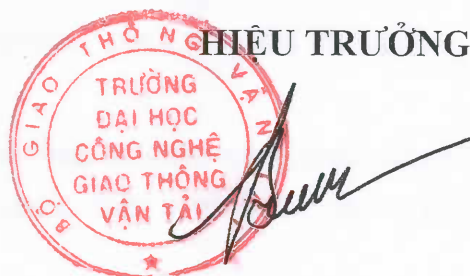 HIỆU TRƯỞNG
BỘ GIAO THÔNG VẬN TẢI
TRƯỜNG
ĐẠI HỌC
CÔNG NGHỆ
GIAO THÔNG
VẬN TẢI